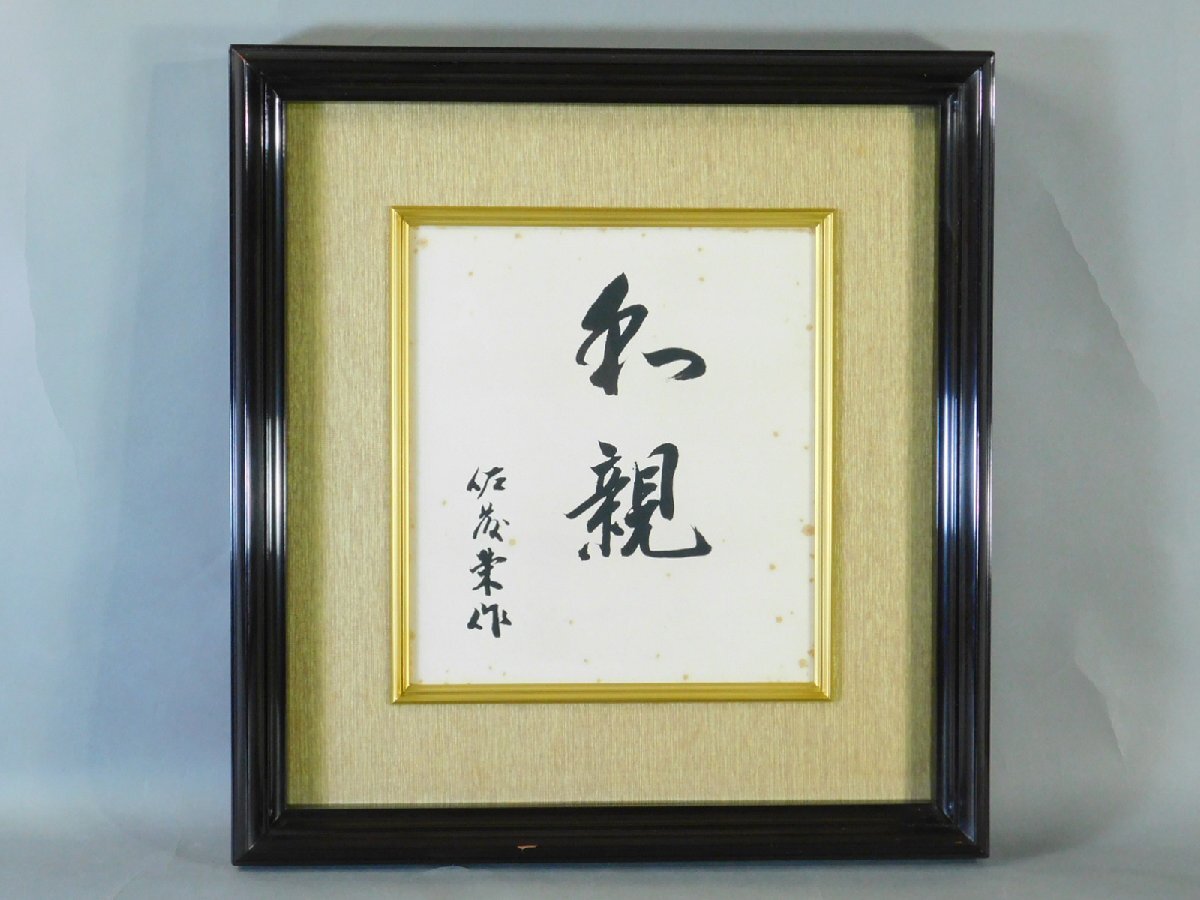 和親
佐藤栄作